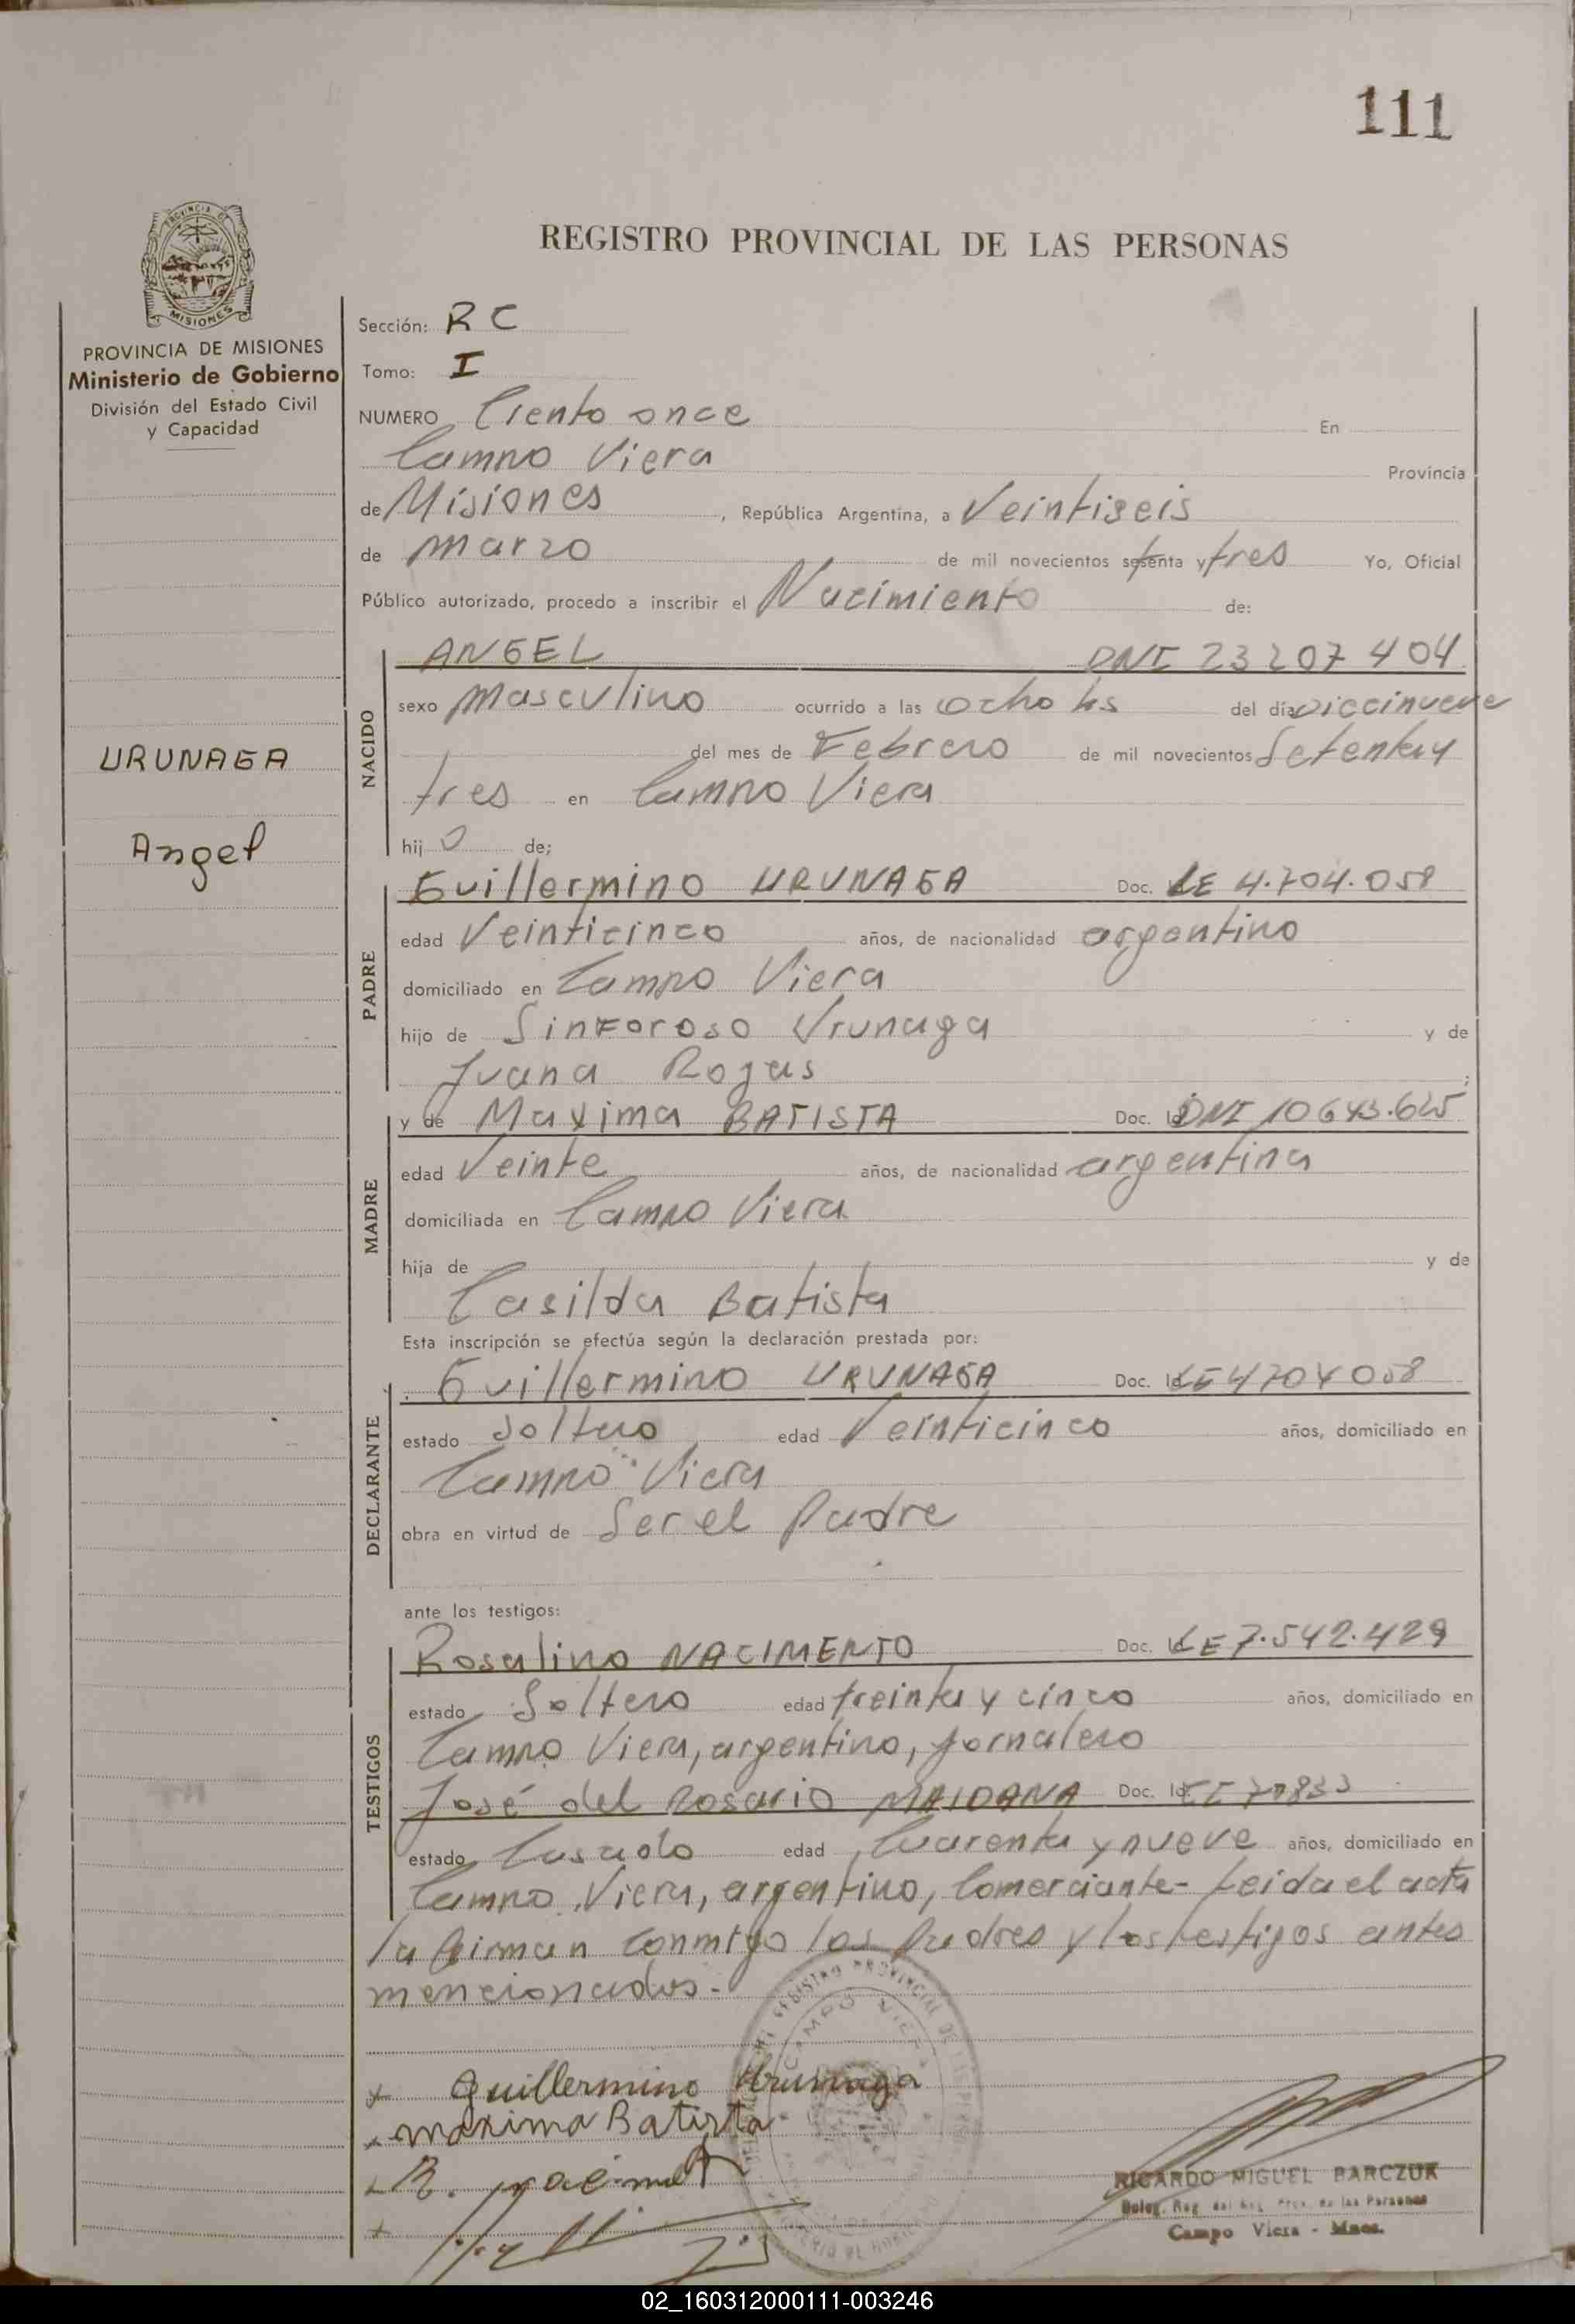 111
PROVINCIA DE
MISIONES
REGISTRO PROVINCIAL DE LAS PERSONAS
PROVINCIA DE MISIONES
Ministerio de Gobierno
División del Estado Civil
y Capacidad
URUNAGA
Angel
Sección: RC
Tomo: I
NUMERO Ciento once En
Campo Viera Provincia
de Misiones, República Argentina, a Veintiseis
de marzo de mil novecientos setenta y tres Yo, Oficial
Público autorizado, procedo a inscribir el Nacimiento de:
NACIDO
ANGEL DNI 23207404
sexo masculino ocurrido a las ocho hs del día Diecinueve
del mes de Febrero de mil novecientos Setenta y
tres en Campo Viera
hijo de;
PADRE
Guillermino URUNAGA Doc. LE 4.704.058
edad Veinticinco años, de nacionalidad argentino
domiciliado en Campo Viera
hijo de Sinforoso Urunaga y de
Juana Rojas;
MADRE
y de Maxima BATISTA Doc. Id. DNI
edad Veinte años, de nacionalidad argentina
domiciliada en Campo Viera
hija de y de
Casilda Batista
Esta inscripción se efectúa según la declaración prestada por:
DECLARANTE
Guillermino URUNAGA Doc. Id. LE 4704058
estado Soltero edad Veinticinco años, domiciliado en
Campo Viera
obra en virtud de Ser el Padre
ante los testigos:
TESTIGOS
Rosalino NACIMENTO Doc. LE 7.542.429
estado Soltero edad treinta y cinco años, domiciliado en
Campo Viera, argentino, jornalero
José del Rosario MAIDANA Doc. Id.
estado Casado edad Cuarenta y nueve años, domiciliado en
Campo Viera, argentino, Comerciante - Leida el acta
la firman conmigo los Padres y los testigos antes
mencionados.-
REGISTRO PROVINCIAL DE LAS
CAMPO VIERA
x Guillermino Urunaga
x maxima Batista
x R.
x
RICARDO MIGUEL BARCZUK
Deleg. Reg. del Reg. Prov. de las Personas
Campo Viera - Mnes.
02_160312000111-003246